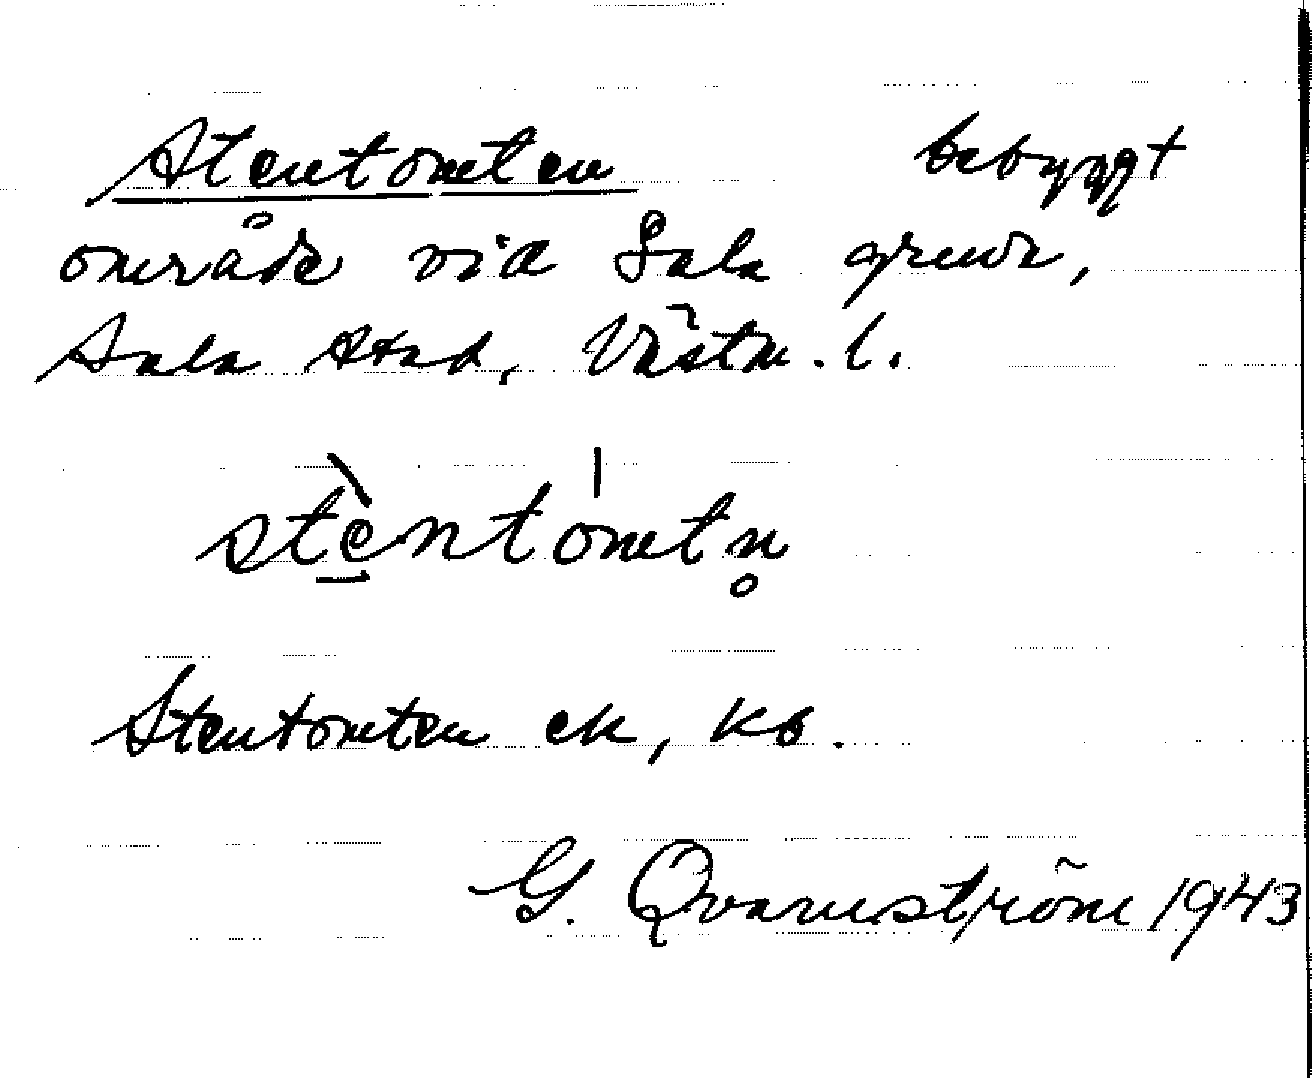 Stentomten bebyggt
område vid Sala gruva,
Sala stad, Västm. l.
stèntomtn̥
Stentomten ek, kb.
G. Qvarnström 1943